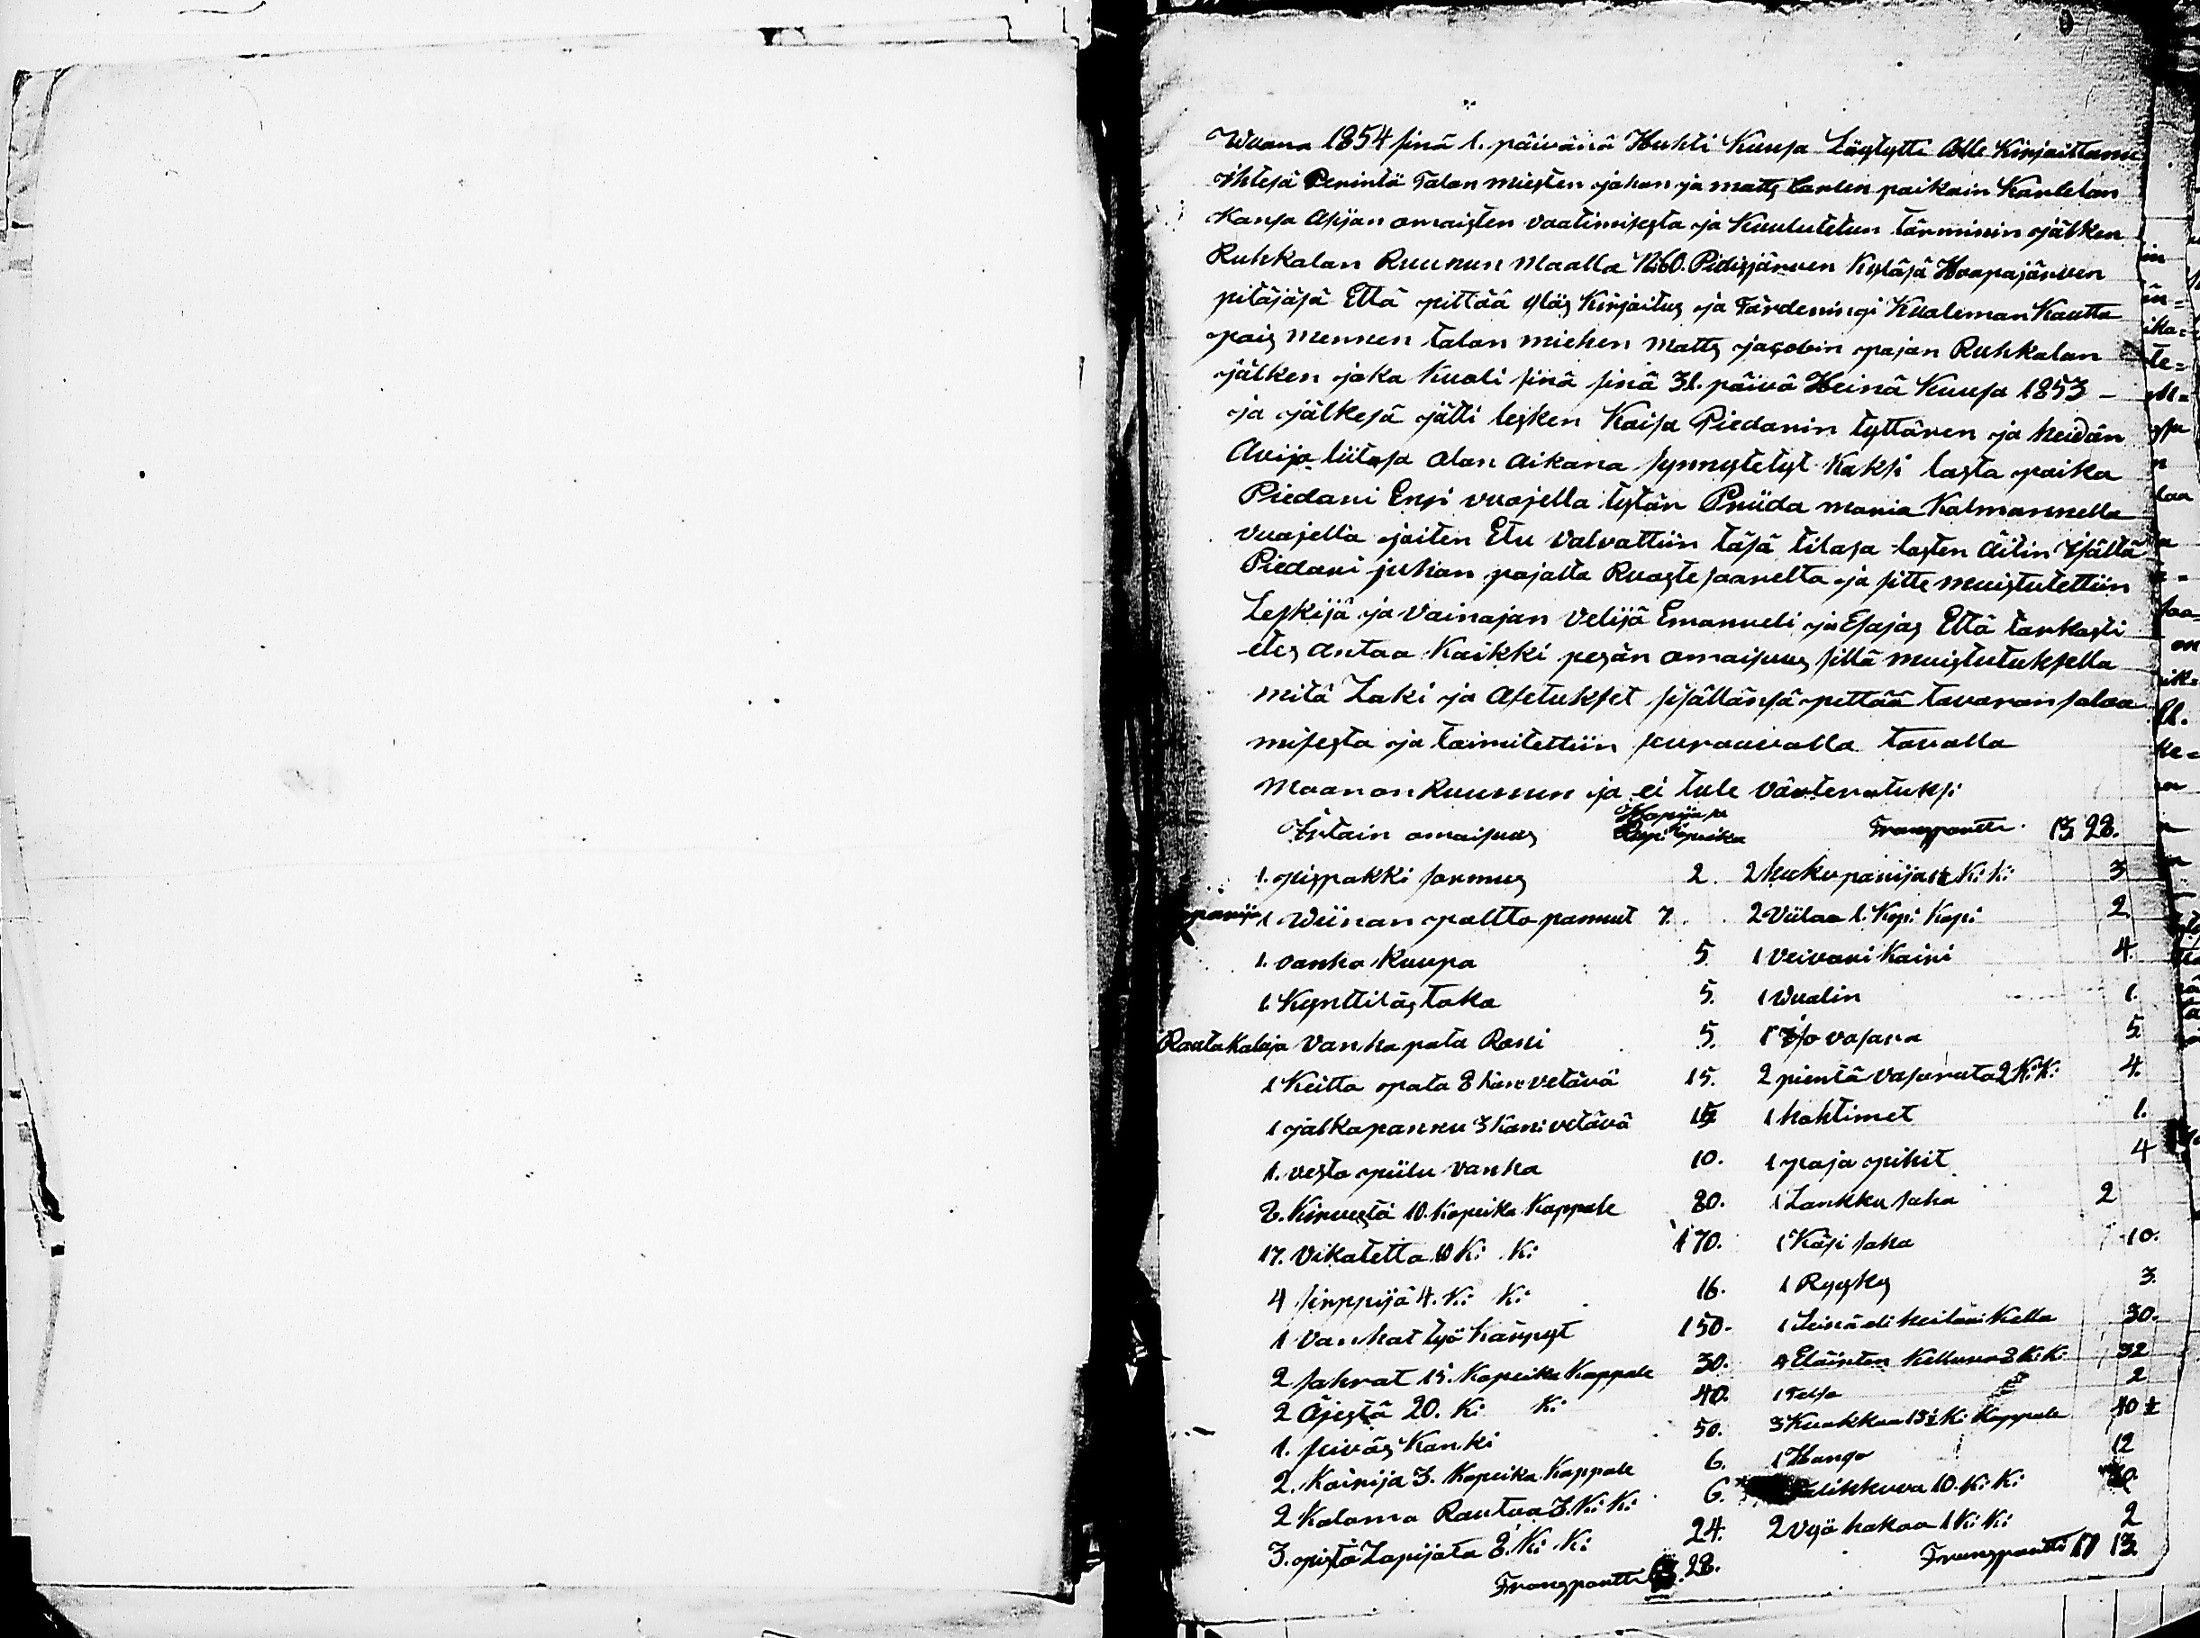 Wuona 1854 sinä 1. päivänä Huhti Kuusa Löystytti Alle Kirjoittanu
ihtesä Perintö Talon miesten johan ja matts Carlen poikain Karletan
Kansa Asijan omaisten vaatimisesta ja Kuulutetun tärminin jälken
Ruhkalan Ruunun Maalla N:60. Pidisjärven Kyläsä Haapajärven
pitäjäsä Että pittää ylös Kirjoitus ja Tärdeningi Kualeman Kautta
pois mennen talon miehen matts jacobin pojan Ruhkalan
jälken joka Kuoli sinä sinä 31. päivä Heinä Kuusa 1853 –
ja jälkesä jätti lesken Kaisa Piedarin tyttären ja heidän
Avijo liitosa olon aikana synnytetyt Kaksi lasta poika
Piedari Ensi vuojella tytär Priida maria Kolmannella
vuojella joiten Etu valvottiin täsä tilasa lasten Äitin Isältä
Piedari juhon pojalta Ruostesaarelta ja sitte muistutettiin
Leskijä ja Vainajan Velijä Emanueli ja Esajas Että tarkasti
etes antaa Kaikki pesän omaisuus sillä muistutuksella
mitä Laki ja Asetukset sisällänsä pittää tavaran salaa
misesta ja toimitettiin seuraavalla tavalla
Maan on Ruunun ja ei tule värteratuksi
Irtain omaisuus Hopijasa Rupi Kopeika Transportti 13 28.
1. pispakki sormus 2. 2 kukuparija 1½ K: K: 3
parija 1 Wiinan poltto pannut 7. 2 Viilaa 1. Kopi Kopi 2.
1. vanha Kuupa 5 1 Veivari Kairi 4.
1. Kynttilästaka 5. 1 Wualin 1.
Rautakaluja Vanha pata Rani 5. 1 Iso vasara 5
1 Keitto pata 8 Kan: vetävä 15. 2 pientä vasarata 2 K: K: 4.
1 jalkapannu 3 Kani vetävä 15 1 hohtimet 1.
1. vesto piilu vanha 10. 1 paja pihit 4
8. Kirvestä 10. Kopeika Kappale 80. 1 Lankku saha 2
17. Vikatetta 10 K: K: 170. 1 Käsi saha 10.
4 sirppijä 4. K: K: 16. 1 Ryysky 3.
1 Vanhat työ kärryt 150. 1 Seinä eli heiläri Kello 30.
2 sahrat 15. Kopeika Kappale 30. 4 Eläinten Kelluva 8 K: K: 32
2 Äjestä 20. K: K: 40. 1 Telso 2
1. seiväs Kanki 50. 3 Kuokkaa 13½ K: Kappale 40 ½
2. Kairija 3. Kopeika Kappale 6. 1 Hango 12
2 Kaloma Rautaa 3. K: K: 6. 10. K: K: 30.
3. pistä Lapijata 8. K: K: 24. 2 Vyö hakaa 1 K: K: 2
Transportti 13. 28. Transportti 17 13